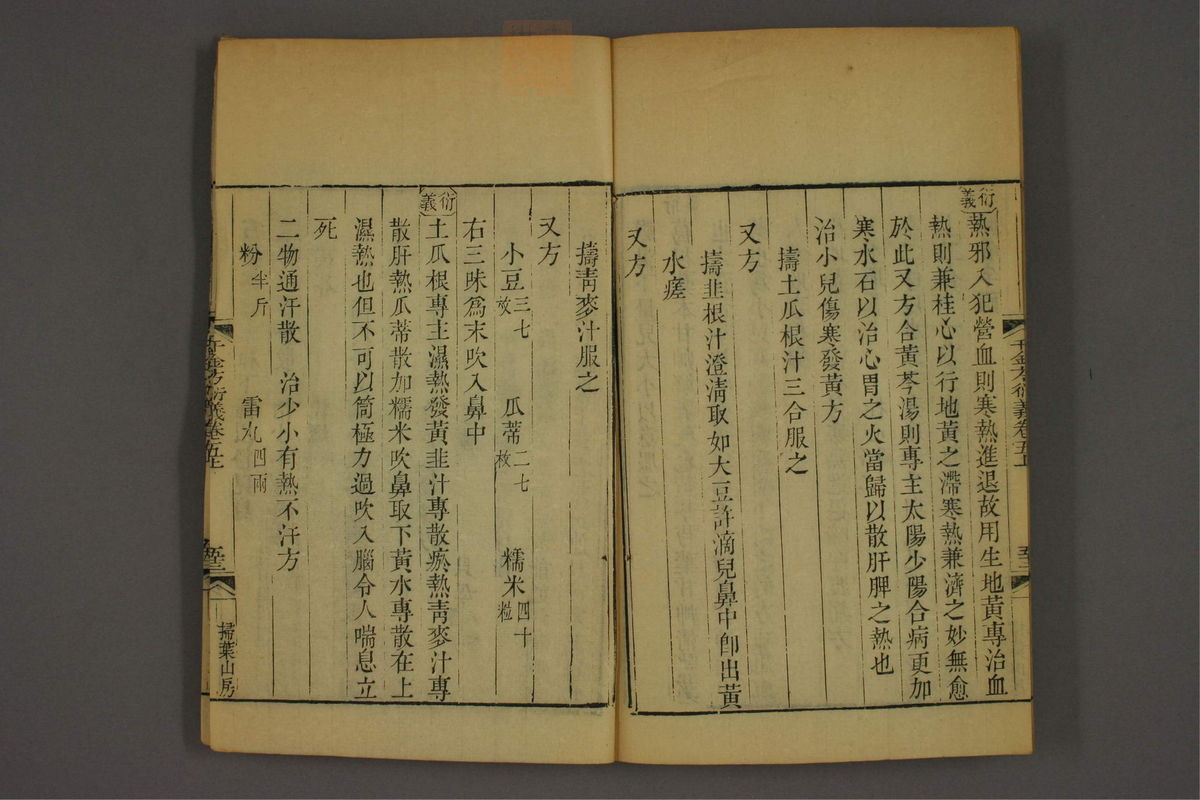 衍義
熱邪入犯營血則寒熱進退故用生地黃專治血
熱則兼桂心以行地黃之滯寒熱兼濟之妙無愈
於此又方合黃芩湯則專主太陽少陽合病更加
寒水石以治心胃之火當歸以散肝脾之熱也
治小兒傷寒發黃方
擣土瓜根汁三合服之
又方
擣韭根汁澄淸取如大豆許滴兒鼻中卽出黃
水瘥
又方
擣靑麥汁服之
又方
小豆三七枚 瓜蒂二七枚 糯米四十粒
右三味爲末吹入鼻中
衍義
土瓜根專主濕熱發黃韭汁專散瘀熱靑麥汁專
散肝熱瓜蒂散加糯米吹鼻取下黃水專散在上
濕熱也但不可以筒極力過吹入腦令人喘息立
死
二物通汗散 治少小有熱不汗方
粉半斤 雷丸四兩
千金方衍義卷五上
掃葉山房